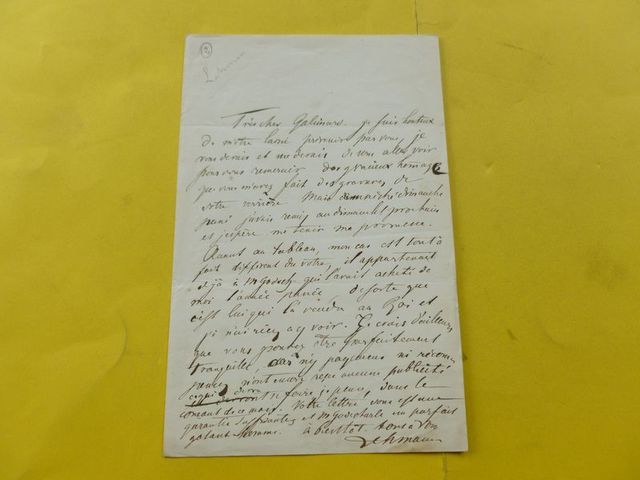 2
Lehmann
Très cher Galimard. je suis honteux
de m'être laissé prévenir par vous, je
vous devais et me devais de vous aller voir
pour vous remercier du gracieux hommage
que vous m'avez fait des gravures de
votre verrière Mais dimanche
passé j'avais remis au dimanche prochain
et j'espère me tenir ma promesse.
Quant au tableau, mon cas est tout à
fait différent du vôtre, il appartenait
déjà à qui l'avait acheté de
moi l'année passée desorte que
c'est lui qui l'a vendu au Roi et
je n'ai rien a y voir. Je crois d'ailleurs
que vous pouvez être parfaitement
tranquille, ni payement ni récom
pense n'ont encore reçu aucune publicité
se faire, je pense, dans le
courant de ce mois. Votre lettre vous est une
garantie suffisante et un parfait
galant homme. à bientôt. tout à vous
Lehmann